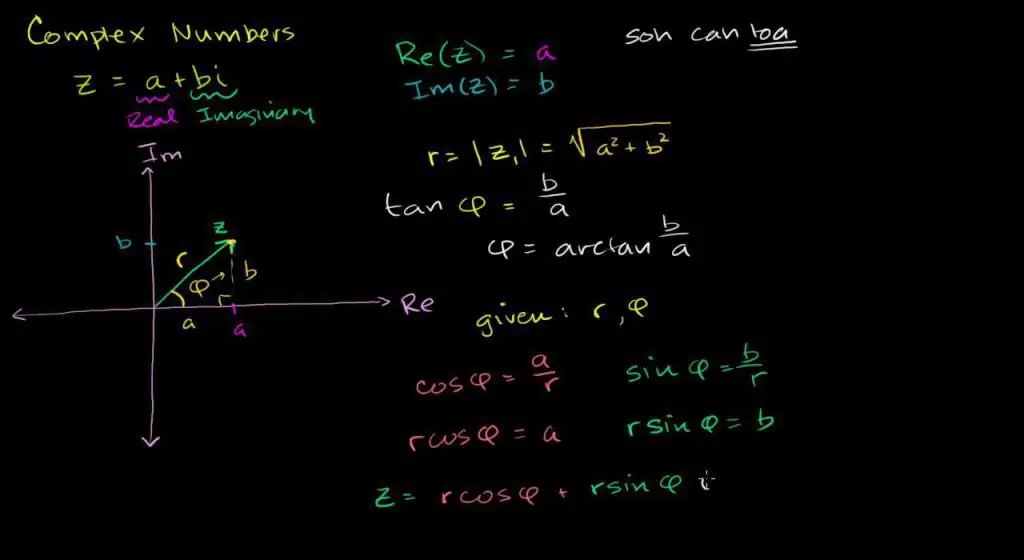 Complex Numbers
z = a + bi
Real Imaginary
Re(z) = a
Im(z) = b
soh cah toa
r = |z₁| = √a² + b²
tan φ = b/a
φ = arctan b/a
Im
b
z
r
φ
b
a
a
Re
given: r, φ
cos φ = a/r
sin φ = b/r
r cos φ = a
r sin φ = b
z = r cos φ + r sin φ i